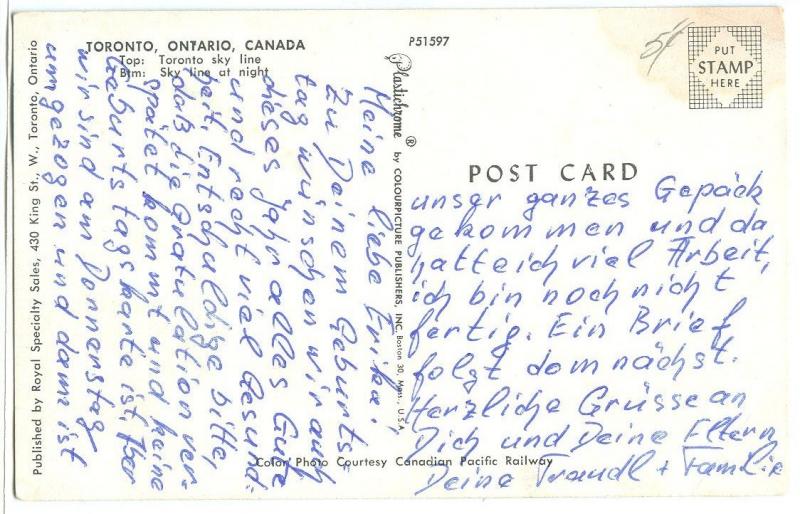 TORONTO, ONTARIO, CANADA
Top: Toronto sky line
Btm: Sky line at night
P51597
5¢
PUT
STAMP
HERE
POST CARD
Published by Royal Specialty Sales, 430 King St., W., Toronto, Ontario
Plastichrome ® by COLOURPICTURE PUBLISHERS, INC. Boston 30, Mass., U.S.A.
Color Photo Courtesy Canadian Pacific Railway
Meine liebe Erika!
Zu Deinem Geburts-
tag wünschen wir auch
dieses Jahr alles Gute
und recht viel Gesund-
heit. Entschuldige bitte,
daß die Gratulation ver-
spätet kommt und keine
Geburtstagskarte ist, aber
wir sind am Donnerstag
umgezogen und dann ist
unser ganzes Gepäck
gekommen und da
hatte ich viel Arbeit,
ich bin noch nicht
fertig. Ein Brief
folgt demnächst.
Herzliche Grüsse an
Dich und Deine Eltern
Deine Traudl + Familie